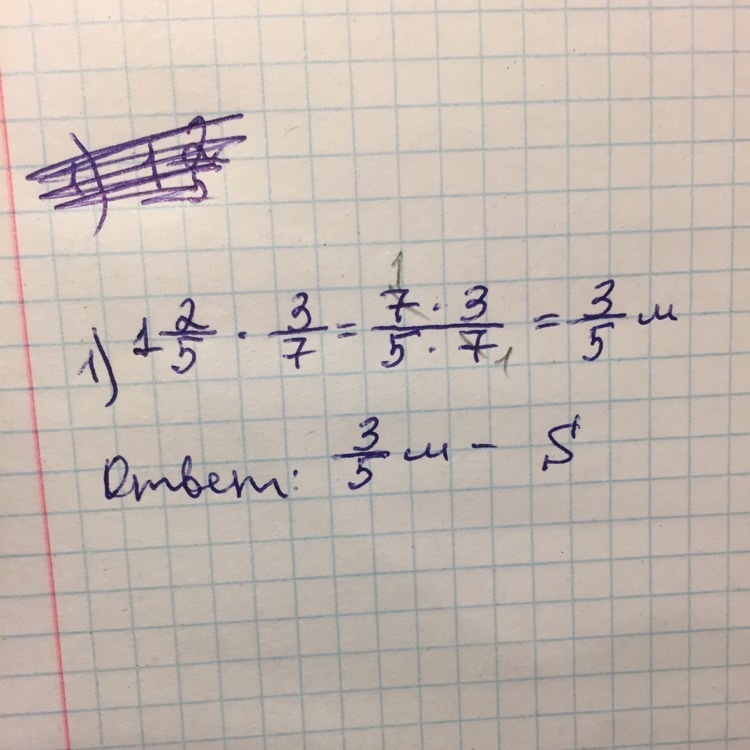 1) 1 2/5 · 3/7 = 7 · 3 / 5 · 7 = 3/5 м
Ответ: 3/5 м - S